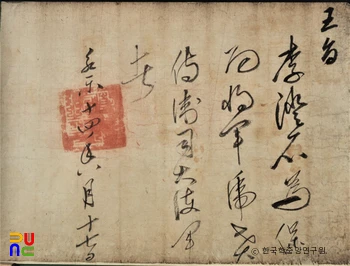 王旨
李澄石爲保
功將軍虎
侍衛司大護軍
者
永樂十四年六月十七日
© 한국학중앙연구원